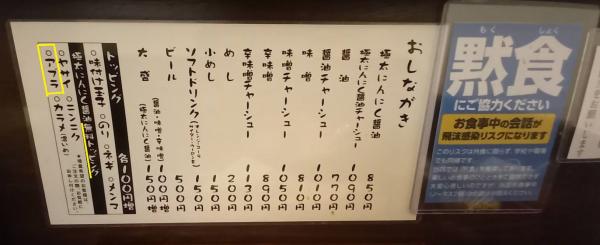 おしながき
極太にんにく醤油 850円
極太にんにく醤油チャーシュー 1090円
醤油 770円
醤油チャーシュー 1010円
味噌 810円
味噌チャーシュー 1050円
辛味噌 890円
辛味噌チャーシュー 1130円
めし 200円
小めし 150円
ソフトドリンク 150円
ビール 500円
大盛 (醤油・味噌・辛味噌) 100円増
(極太にんにく醤油) 150円増
トッピング 各100円増
○味付け玉子 ○のり ○ネギ ○メンマ
極太にんにく醤油無料トッピング
○ヤサイ ○ニンニク
○アブラ ○カラメ(濃いめ)
もく しょく
黙食
にご協力ください
お食事中の会話が
飛沫感染リスクになります